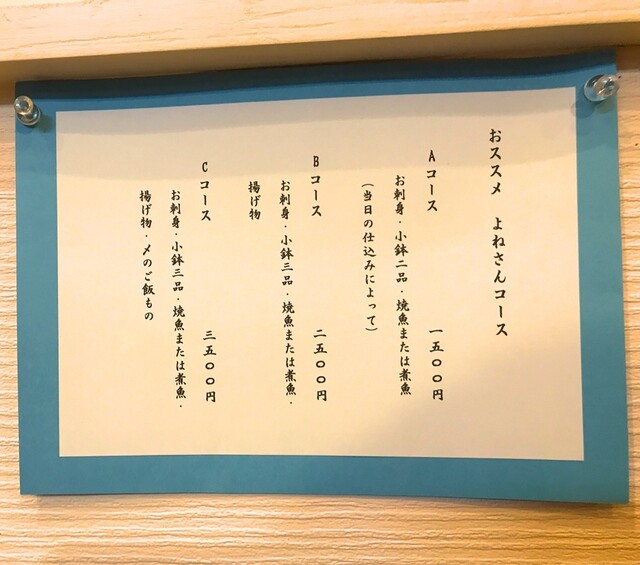 おススメ　よねさんコース
Aコース　一五〇〇円
お刺身・小鉢二品・焼魚または煮魚
（当日の仕込みによって）
Bコース　二五〇〇円
お刺身・小鉢三品・焼魚または煮魚・
揚げ物
Cコース　三五〇〇円
お刺身・小鉢三品・焼魚または煮魚・
揚げ物・〆のご飯もの